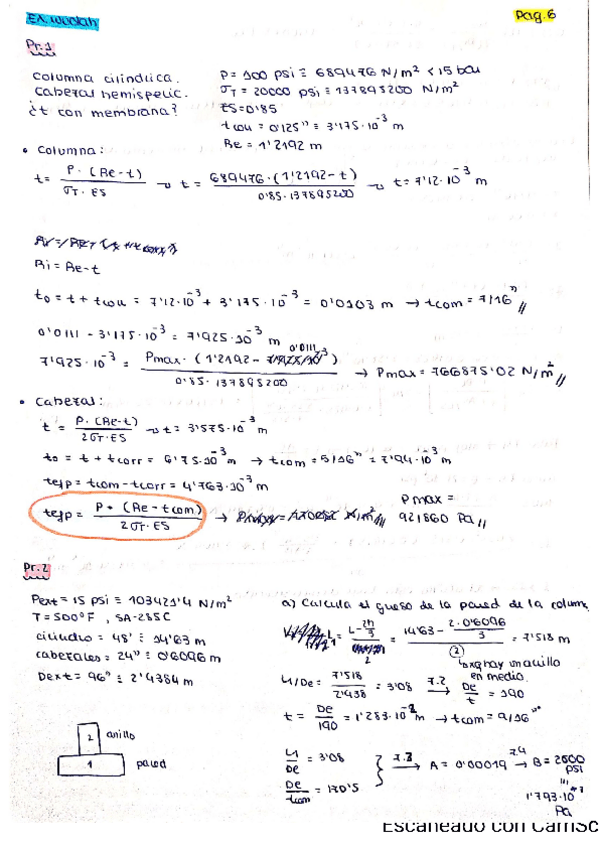 Ex. wuolah
Pag. 6
Pr. 1
Columna cilíndrica.
Cabezal hemisferic.
¿t con membrana?
P = 100 psi ≡ 689476 N/m² < 15 bar
σT = 20000 psi ≡ 137895200 N/m²
ES = 0'85
tcorr = 0'125" ≡ 3'175·10⁻³ m
Re = 1'2192 m
• Columna:
t = P·(Re-t) / σT·ES → t = 689476·(1'2192-t) / 0'85·137895200 → t = 7'12·10⁻³ m
Ri = Re-t
t0 = t + tcorr = 7'12·10⁻³ + 3'175·10⁻³ = 0'0103 m → tcom = 7/16"//
0'0111 - 3'175·10⁻³ = 7'925·10⁻³ m
7'925·10⁻³ = Pmax·(1'2192 - 0'0111) / 0'85·137895200 → Pmax = 766875'02 N/m²//
• Cabezal:
t = P·(Re-t) / 2σT·ES → t = 3'575·10⁻³ m
t0 = t + tcorr = 6'75·10⁻³ m → tcom = 5/16" = 7'94·10⁻³ m
tesp = tcom - tcorr = 4'763·10⁻³ m
tesp = P·(Re-tcom) / 2σT·ES →
Pmax =
921860 Pa//
Pr. 2
Pext = 15 psi ≡ 103421'4 N/m²
T = 500°F, SA-285C
cilindro = 48' ≡ 14'63 m
cabezales = 24" ≡ 0'6096 m
Dext = 96" ≡ 2'4384 m
2 anillo
1 pared
a) Calcula el grueso de la pared de la column.
L1 = L-2h/3 / 2 = 14'63 - 2·0'6096/3 / 2 = 7'518 m
↳ xq hay un anillo
en medio.
L1/De = 7'518 / 2'438 = 3'08 → 7.2 De/t = 190
t = De/190 = 1'283·10⁻² m → tcom = 9/16"
L1/De = 3'08
De/tcom = 170'5
} 7.3 → A = 0'00019 → 7.4 B = 2600
psi
1'793·10⁺⁷
Pa
Escaneado con CamSc